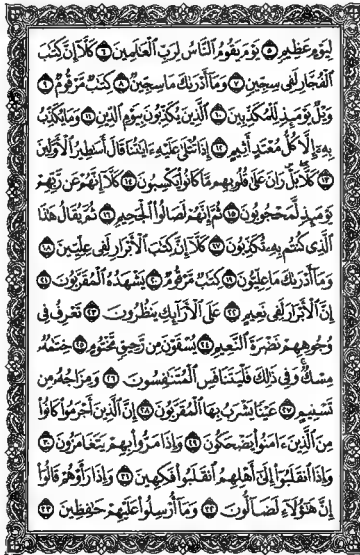 لِيَوۡمٍ عَظِيمٖ ٥ يَوۡمَ يَقُومُ ٱلنَّاسُ لِرَبِّ ٱلۡعَٰلَمِينَ ٦ كَلَّآ إِنَّ كِتَٰبَ
ٱلۡفُجَّارِ لَفِي سِجِّينٖ ٧ وَمَآ أَدۡرَىٰكَ مَا سِجِّينٞ ٨ كِتَٰبٞ مَّرۡقُومٞ ٩
وَيۡلٞ يَوۡمَئِذٖ لِّلۡمُكَذِّبِينَ ١٠ ٱلَّذِينَ يُكَذِّبُونَ بِيَوۡمِ ٱلدِّينِ ١١ وَمَا يُكَذِّبُ
بِهِۦٓ إِلَّا كُلُّ مُعۡتَدٍ أَثِيمٍ ١٢ إِذَا تُتۡلَىٰ عَلَيۡهِ ءَايَٰتُنَا قَالَ أَسَٰطِيرُ ٱلۡأَوَّلِينَ
١٣ كَلَّاۖ بَلۡۜ رَانَ عَلَىٰ قُلُوبِهِم مَّا كَانُواْ يَكۡسِبُونَ ١٤ كَلَّآ إِنَّهُمۡ عَن رَّبِّهِمۡ
يَوۡمَئِذٖ لَّمَحۡجُوبُونَ ١٥ ثُمَّ إِنَّهُمۡ لَصَالُواْ ٱلۡجَحِيمِ ١٦ ثُمَّ يُقَالُ هَٰذَا
ٱلَّذِي كُنتُم بِهِۦ تُكَذِّبُونَ ١٧ كَلَّآ إِنَّ كِتَٰبَ ٱلۡأَبۡرَارِ لَفِي عِلِّيِّينَ ١٨
وَمَآ أَدۡرَىٰكَ مَا عِلِّيُّونَ ١٩ كِتَٰبٞ مَّرۡقُومٞ ٢٠ يَشۡهَدُهُ ٱلۡمُقَرَّبُونَ ٢١
إِنَّ ٱلۡأَبۡرَارَ لَفِي نَعِيمٍ ٢٢ عَلَى ٱلۡأَرَآئِكِ يَنظُرُونَ ٢٣ تَعۡرِفُ فِي
وُجُوهِهِمۡ نَضۡرَةَ ٱلنَّعِيمِ ٢٤ يُسۡقَوۡنَ مِن رَّحِيقٖ مَّخۡتُومٍ ٢٥ خِتَٰمُهُۥ
مِسۡكٞۚ وَفِي ذَٰلِكَ فَلۡيَتَنَافَسِ ٱلۡمُتَنَٰفِسُونَ ٢٦ وَمِزَاجُهُۥ مِن
تَسۡنِيمٍ ٢٧ عَيۡنٗا يَشۡرَبُ بِهَا ٱلۡمُقَرَّبُونَ ٢٨ إِنَّ ٱلَّذِينَ أَجۡرَمُواْ كَانُواْ
مِنَ ٱلَّذِينَ ءَامَنُواْ يَضۡحَكُونَ ٢٩ وَإِذَا مَرُّواْ بِهِمۡ يَتَغَامَزُونَ ٣٠
وَإِذَا ٱنقَلَبُوٓاْ إِلَىٰٓ أَهۡلِهِمُ ٱنقَلَبُواْ فَكِهِينَ ٣١ وَإِذَا رَأَوۡهُمۡ قَالُوٓاْ
إِنَّ هَٰٓؤُلَآءِ لَضَآلُّونَ ٣٢ وَمَآ أُرۡسِلُواْ عَلَيۡهِمۡ حَٰفِظِينَ ٣٣